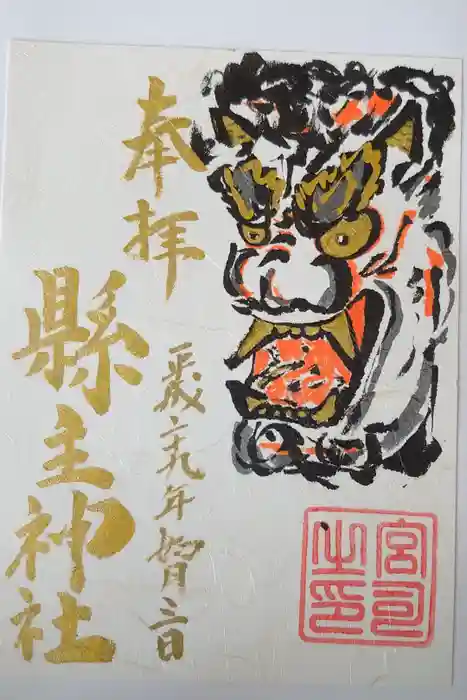 奉拝
平成二十九年如月三日
縣主神社
宮司
之印